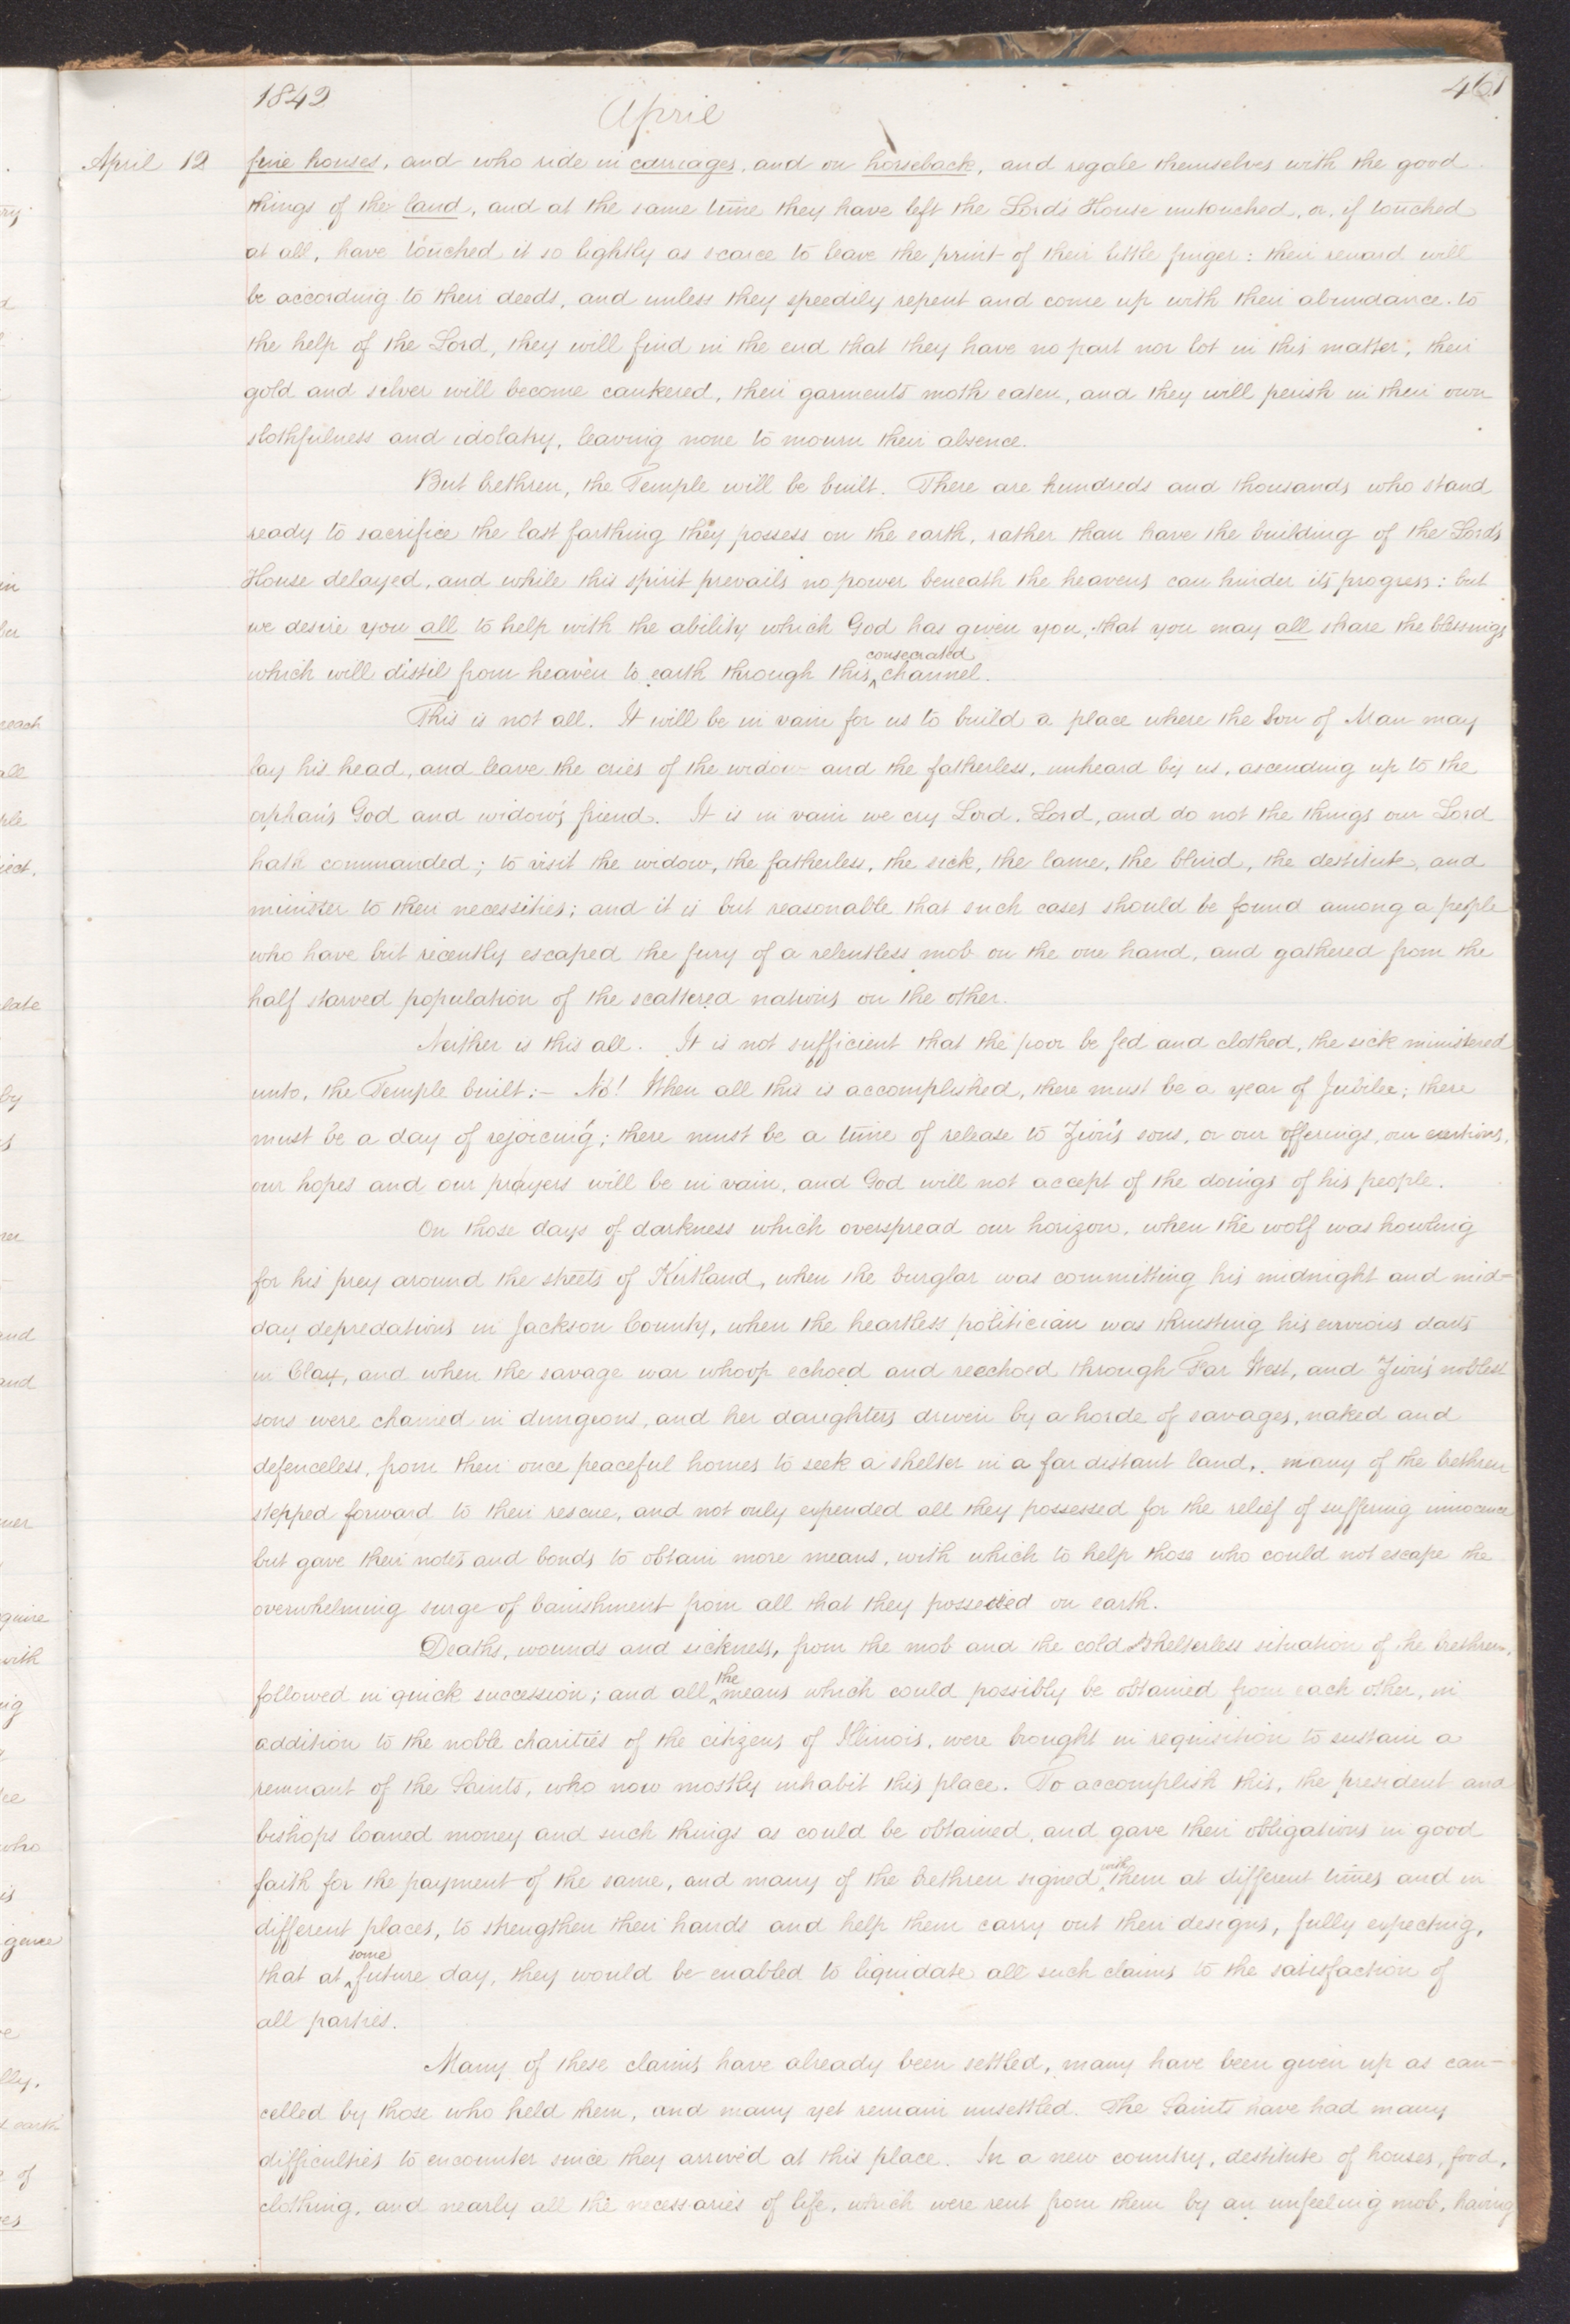 1842
April
461
April 12
fine houses, and who ride in carriages, and on horseback, and regale themselves with the good
things of the land, and at the same time they have left the Lord's House untouched, or, if touched
at all, have touched it so lightly as scarce to leave the print of their little finger: their reward will
be according to their deeds, and unless they speedily repent and come up with their abundance to
the help of the Lord, they will find in the end that they have no part nor lot in this matter; their
gold and silver will become cankered, their garments moth eaten, and they will perish in their own
slothfulness and idolatry, leaving none to mourn their absence.
But brethren, the Temple will be built. There are hundreds and thousands who stand
ready to sacrifice the last farthing they possess on the earth, rather than have the building of the Lord's
House delayed, and while this spirit prevails no power beneath the heavens can hinder its progress: but
we desire you all to help with the ability which God has given you, that you may all share the blessings
which will distil from heaven to earth through this consecrated channel.
This is not all. It will be in vain for us to build a place where the Son of Man may
lay his head, and leave the cries of the widow and the fatherless, unheard by us, ascending up to the
orphan's God and widow's friend. It is in vain we cry Lord, Lord, and do not the things our Lord
hath commanded; to visit the widow, the fatherless, the sick, the lame, the blind, the destitute, and
minister to their necessities; and it is but reasonable that such cases should be found among a people
who have but recently escaped the fury of a relentless mob on the one hand, and gathered from the
half starved population of the scattered nations on the other.
Neither is this all. It is not sufficient that the poor be fed and clothed, the sick ministered
unto, the Temple built:— No! When all this is accomplished, there must be a year of Jubilee; there
must be a day of rejoicing; there must be a time of release to Zion's sons, or our offerings, our exertions,
our hopes and our prayers will be in vain, and God will not accept of the doings of his people.
On those days of darkness which overspread our horizon, when the wolf was howling
for his prey around the streets of Kirtland, when the burglar was committing his midnight and mid-
day depredations in Jackson County, when the heartless politician was thrusting his envious darts
in Clay, and when the savage war whoop echoed and reechoed through Far West, and Zion's noblest
sons were chained in dungeons, and her daughters driven by a horde of savages, naked and
defenceless, from their once peaceful homes to seek a shelter in a far distant land, many of the brethren
stepped forward to their rescue, and not only expended all they possessed for the relief of suffering innocence
but gave their notes and bonds to obtain more means, with which to help those who could not escape the
overwhelming surge of banishment from all that they possessed on earth.
Deaths, wounds and sickness, from the mob and the cold shelterless situation of the brethren,
followed in quick succession; and all the means which could possibly be obtained from each other, in
addition to the noble charities of the citizens of Illinois, were brought in requisition to sustain a
remnant of the Saints, who now mostly inhabit this place. To accomplish this, the president and
bishops loaned money and such things as could be obtained, and gave their obligations in good
faith for the payment of the same, and many of the brethren signed with them at different times and in
different places, to strengthen their hands and help them carry out their designs, fully expecting,
that at some future day, they would be enabled to liquidate all such claims to the satisfaction of
all parties.
Many of these claims have already been settled, many have been given up as can-
celled by those who held them, and many yet remain unsettled. The Saints have had many
difficulties to encounter since they arrived at this place. In a new country, destitute of houses, food,
clothing, and nearly all the necessaries of life, which were rent from them by an unfeeling mob, having